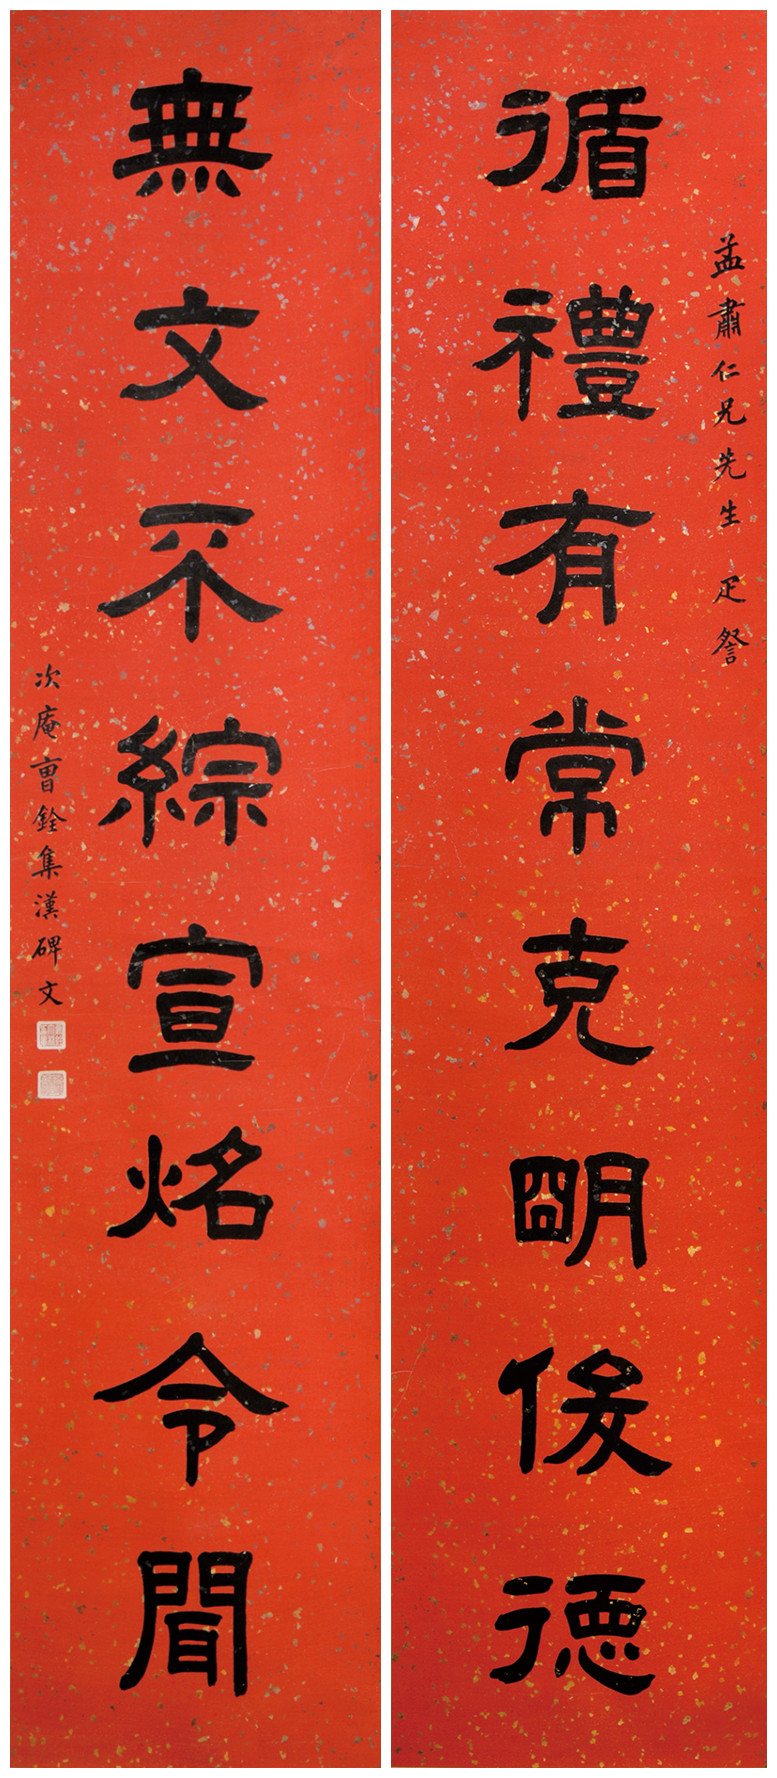 孟肅仁兄先生 疋詧
循禮有常克朙俊德
無文不綜宣炤令聞
次庵曹銓集漢碑文